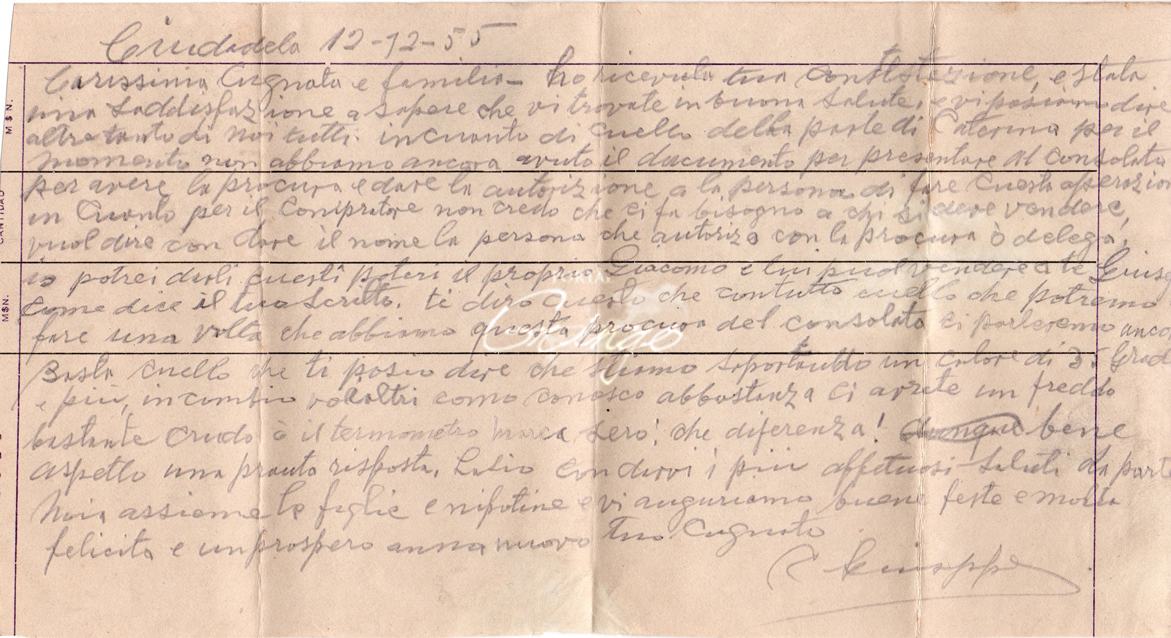 Ciudadela 12-12-55
Carissima Cugnata e familia - ho ricevuta tua contstazione, e stata
una saddisfazione a sapere che vi trovate in buona salute, e vi posiamo dire
altretanto di noi tutti. incuanto di cuello della parte di Caterina per il
momento non abbiamo ancora avuto il documento per presentare al Consolato
per avere la procura e dare la autorizione a la persona di fare cuesta operazion
in Cuanto per il Compratore non credo che ci fa bisogno a chi si deve vendere,
vuol dire con dare il nome la persona che autoriza con la procura ò delega,
io potrei darli cuesti poteri il proprio Giacomo e lui puol vendere a te Giuse
come dice il tuo scritto. ti diro cuesto che contutto cuello che potremo
fare una volta che abbiamo questa procura del consolato ci parleremo anco
Basta cuello che ti poso dire che stiamo soportando un calore di 35 Grad
e più, in cambio voialtri como conosco abbastanza ci avrete un freddo
bastante crudo ò il termometro marca sero! che diferenza! dunque bene
aspetto una pronta risposta, Lascio con darvi i più affetuosi saluti da parte
Noia assieme le figlie e nipotine e vi auguriamo buene feste e molta
felicita e un prospero anna nuovo tuo Cugnato
Giuseppe